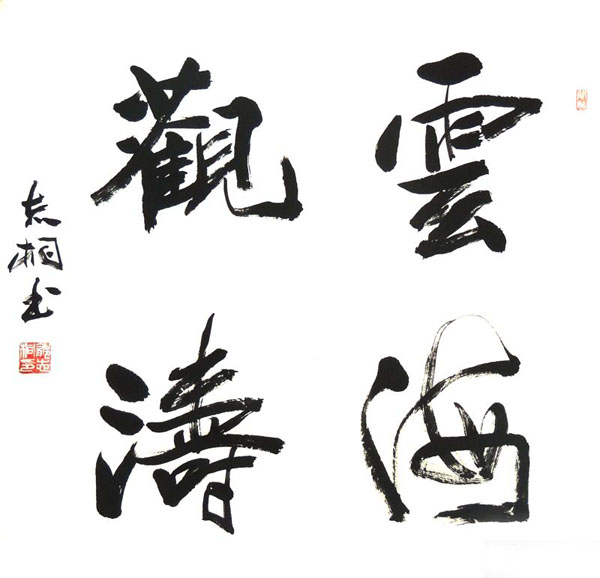 雲海
觀濤
志桐书